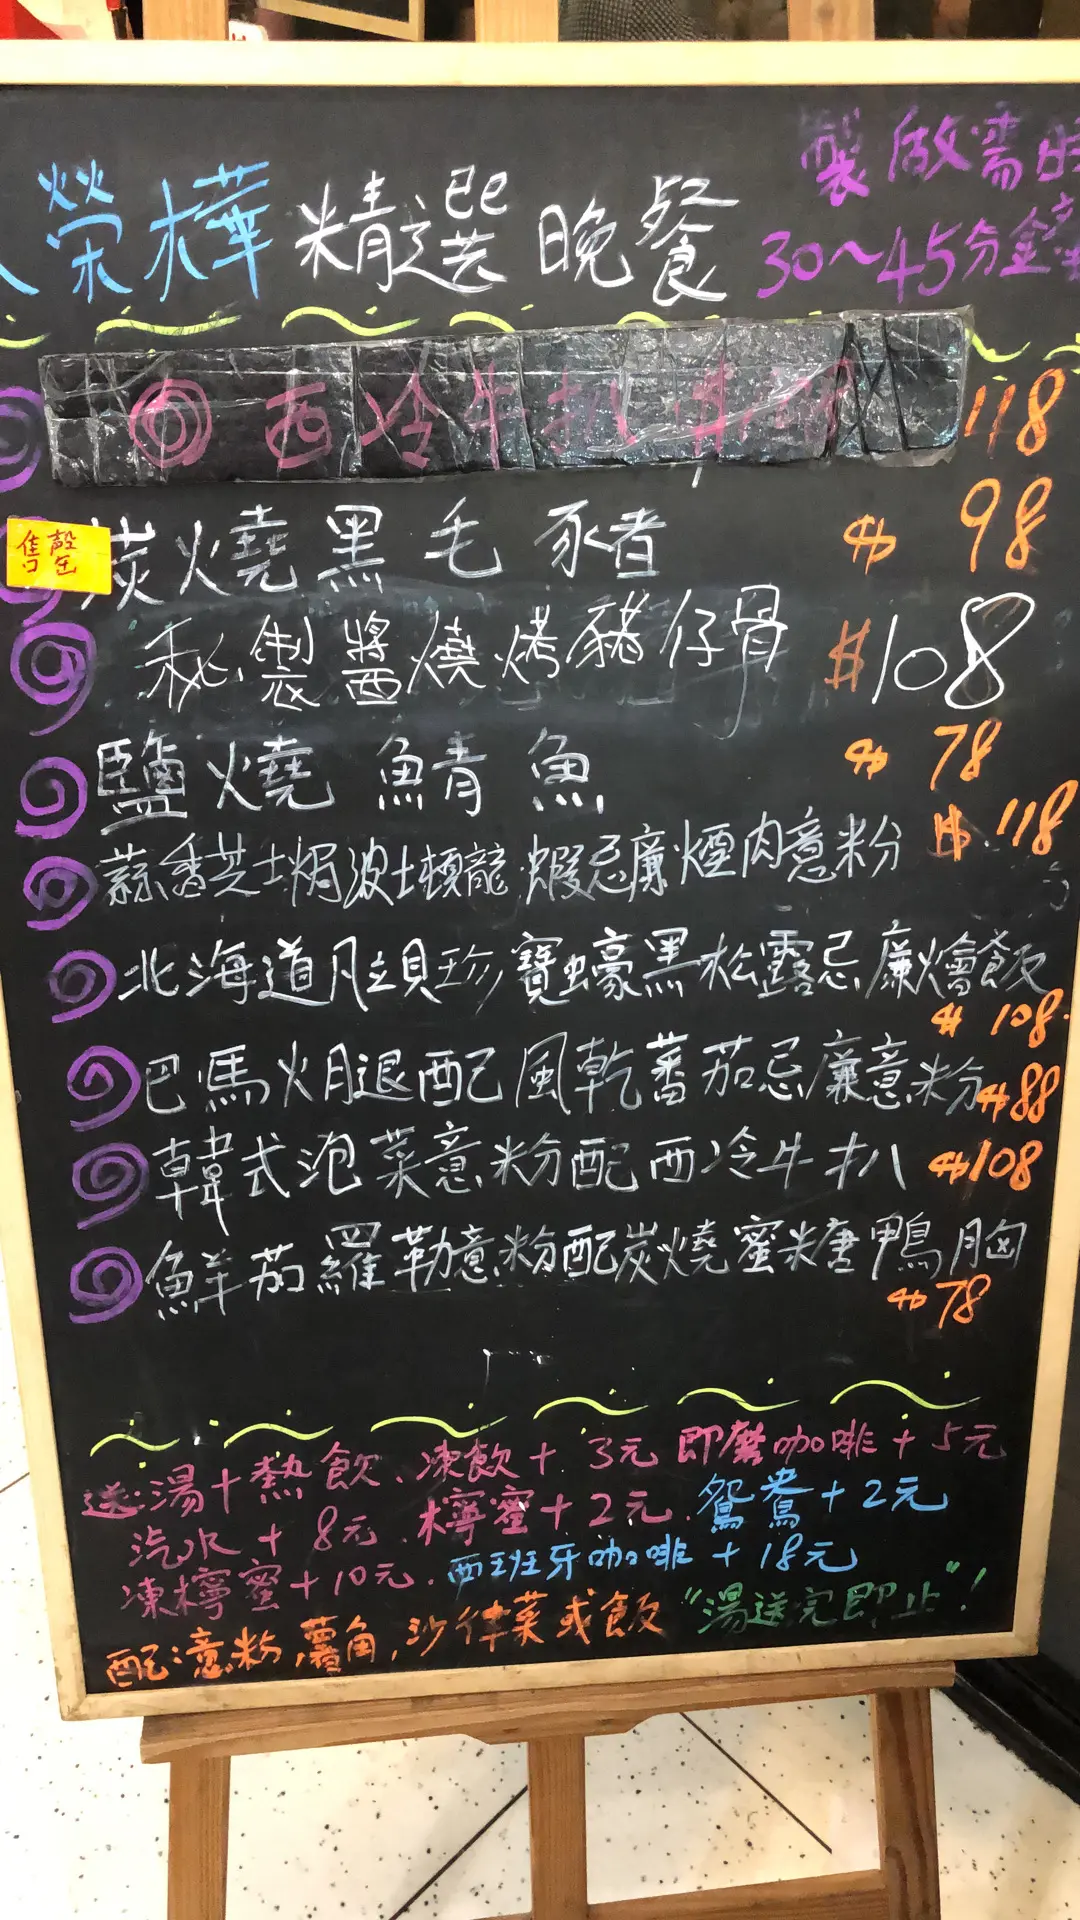 榮樺 精選 晚餐
製做需時
30~45分鐘
西冷牛扒 118
售罄
炭燒黑毛豬 $ 98
秘製醬燒烤豬仔骨 $108
鹽燒鯖魚 $ 78
蒜香芝士焗波士頓龍蝦忌廉煙肉意粉 $118
北海道月旦貝珍寶蠔黑松露忌廉燴飯
$ 108.
巴馬火腿配風乾蕃茄忌廉意粉 $88
韓式泡菜意粉配西冷牛扒 $108
鮮茄羅勒意粉配炭燒蜜糖鴨胸
$78
送:湯+熱飲、凍飲+3元 即磨咖啡+5元
汽水+8元.檸蜜+2元.鴛鴦+2元
凍檸蜜+10元.西班牙咖啡+18元
配:意粉,薯角,沙律菜或飯 "湯送完即止"!